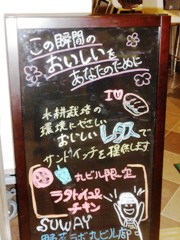 この瞬間の
おいしいを
あなたのために
I
水耕栽培の
環境にやさしい
おいしいレタスで
サンドイッチを提供します
丸ビル限定
ラタトゥイユ
チキン
SUWAY
野菜ラボ丸ビル店